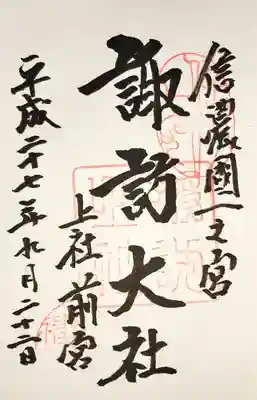 信濃國一之宮
諏訪大社
上社前宮
平成二十七年九月二十二日